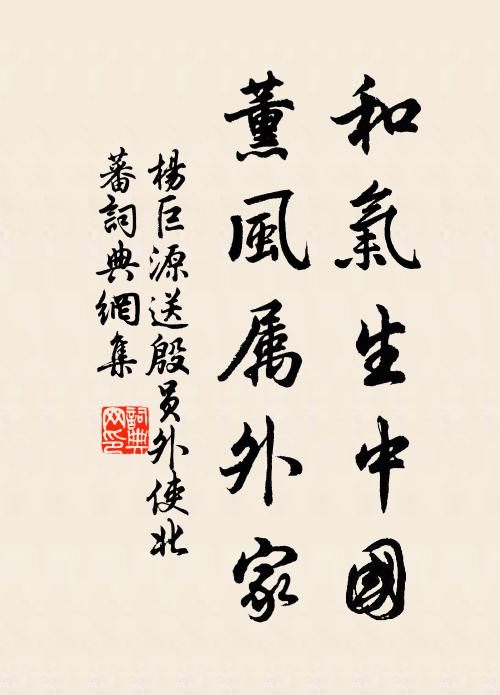 和氣生中國
薰風属外家
楊巨源送殷员外使北
蕃詞典網集
詞典网印